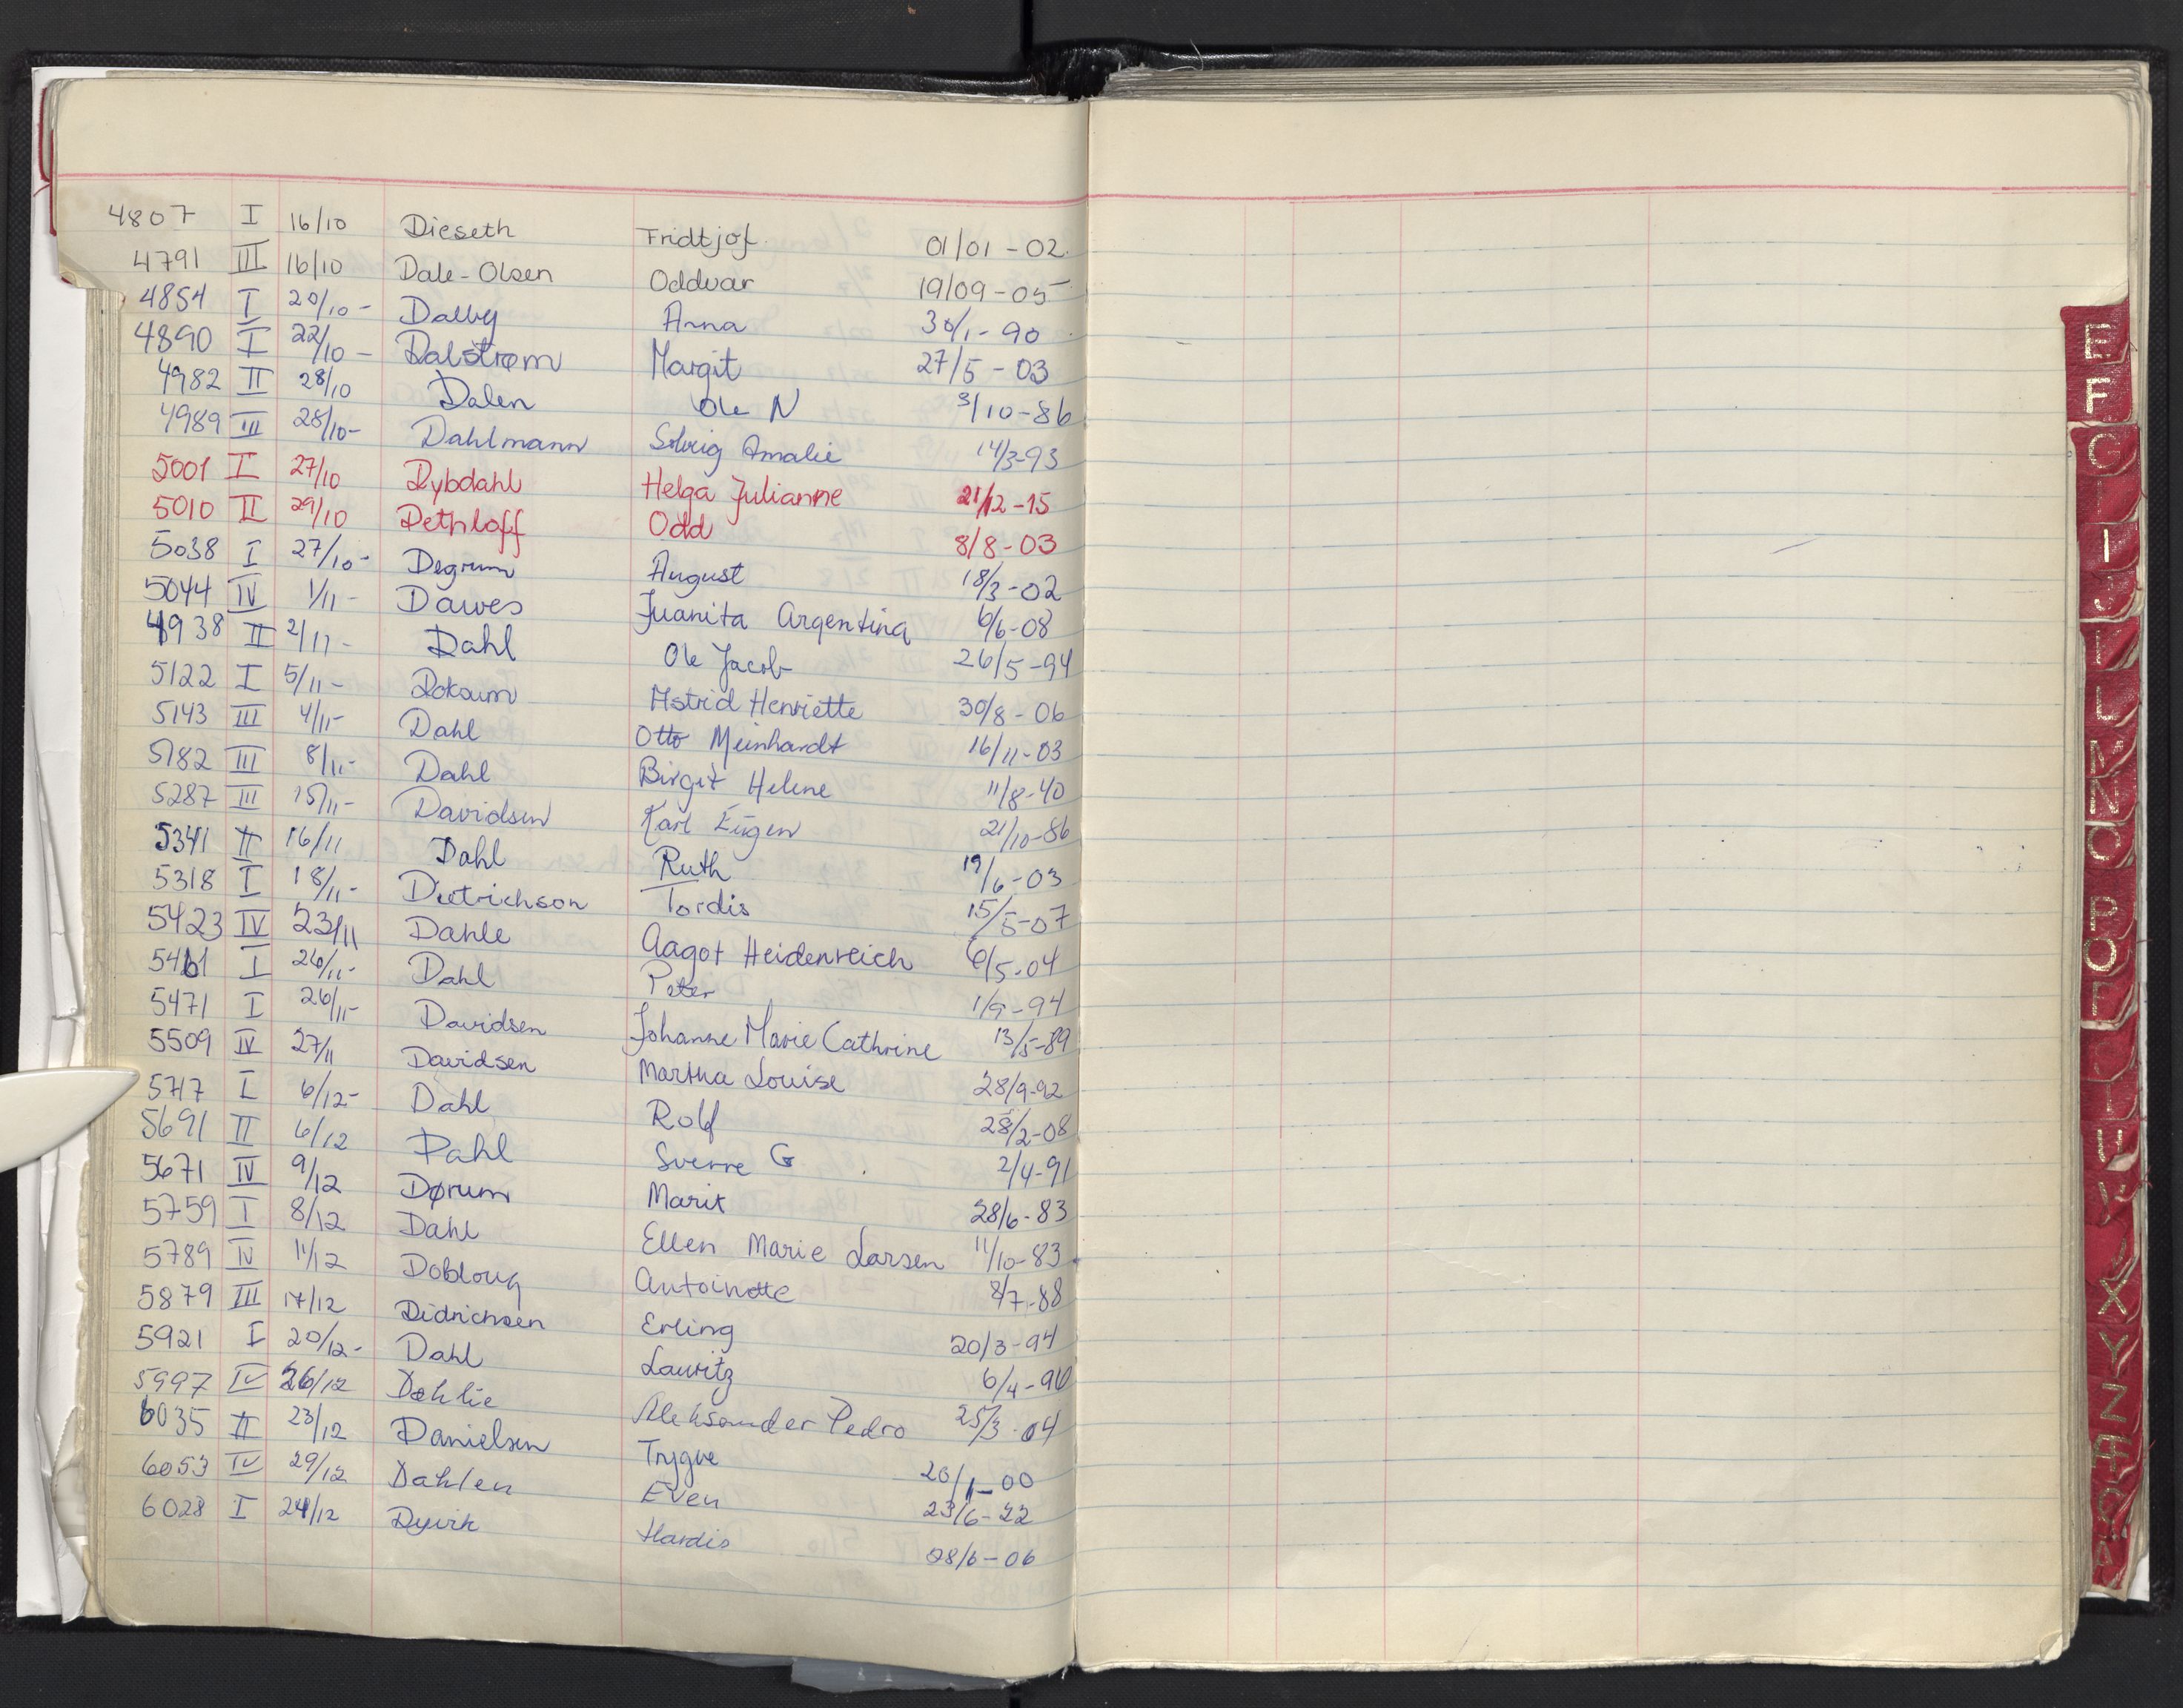 4807 I 16/10 Dieseth Fridtjof 01/01-02
4791 III 16/10 Dale-Olsen Oddvar 19/09-05
4854 I 20/10- Dalby Anna 30/1-90
4890 I 22/10- Dalstrøm Margit 27/5-03
4982 II 28/10 Dalen Ole N 3/10-86
4989 III 28/10- Dahlmann Solveig Amalie 14/3-93
5001 I 27/10 Dybdahl Helga Julianne 21/12-15
5010 II 29/10 Dethloff Odd 8/8-03
5038 I 27/10- Degrum August 18/3-02
5044 IV 1/11- Dawes Juanita Argentina 6/6-08
4938 II 2/11- Dahl Ole Jacob 26/5-94
5122 I 5/11- Doksum Astrid Henriette 30/8-06
5143 III 4/11- Dahl Otto Meinhardt 16/11-03
5182 III 8/11- Dahl Birgit Helene 11/8-40
5287 III 15/11- Davidsen Karl Eugen 21/10-86
5341 II 16/11 Dahl Ruth 19/6-03
5318 I 18/11- Dietrichson Tordis 15/5-07
5423 IV 23/11 Dahle Aagot Heidenreich 6/5-04
5461 I 26/11- Dahl Peter 1/9-94
5471 I 26/11- Davidsen Johanne Marie Cathrine 13/5-89
5509 IV 27/11 Davidsen Martha Louise 28/9-92
5717 I 6/12- Dahl Rolf 28/2-08
5691 II 6/12 Dahl Sverre G 2/4-91
5671 IV 9/12 Dørum Marit 28/6-83
5759 I 8/12 Dahl Ellen Marie Larsen 11/10-83
5789 IV 11/12 Dobloug Antoinette 8/7-88
5879 III 17/12 Didrichsen Erling 20/3-94
5921 I 20/12- Dahl Lauritz 6/4-90
5997 IV 26/12 Dæhlie Aleksander Pedro 25/3-04
6035 II 23/12 Danielsen Trygve 20/1-00
6053 IV 29/12 Dahlen Even 23/6-22
6028 I 24/12 Dyvik Hardis 28/6-06
E
F
G
I
J
L
M
N
O
P
X
Y
Z